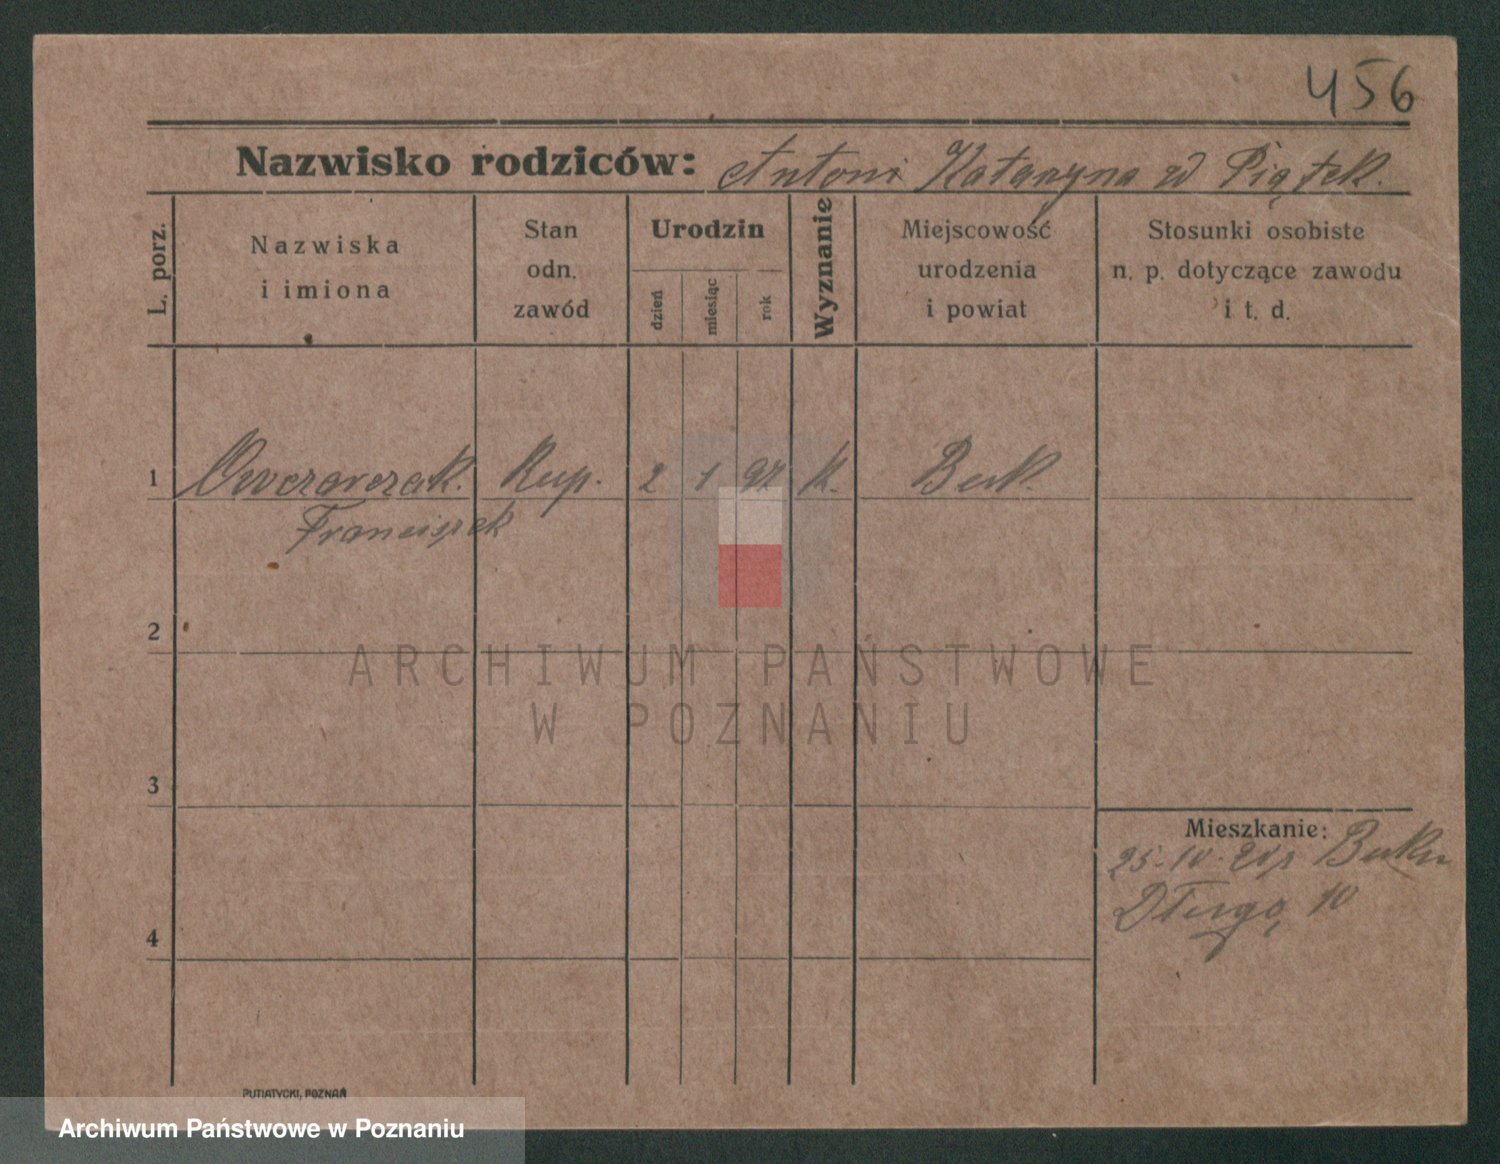 456
Nazwisko rodziców: Antoni Katarzyna z d Piątek.
L. porz.
Nazwiska
i imiona
Stan
odn.
zawód
Urodzin
dzień
miesiąc
rok
Wyznanie
Miejscowość
urodzenia
i powiat
Stosunki osobiste
n. p. dotyczące zawodu
i t. d.
1 Owczarczak. Kup. 2 1 92 k. Buk.
Franciszek
2
3
4
Mieszkanie:
25.10. Buku
Długa 10
ARCHIWUM PAŃSTWOWE
W POZNANIU
PUTIATYCKI, POZNAŃ
Archiwum Państwowe w Poznaniu